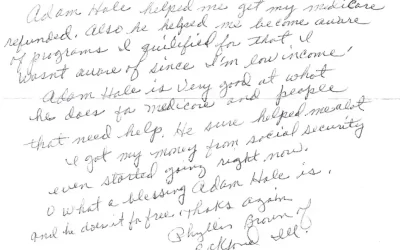 Adam Hale helped me get my medicare
refunded. Also he helped me become aware
of programs I qulified for that I
wasn't aware of since I'm low income!
Adam Hale is very good at what
he does for medicare and people
that need help. He sure helped me alot
I got my money from social security
even started going right now.
O what a blessing Adam Hale is.
and he does it for free. Thaks again
Phyllis Brown of
Ill.